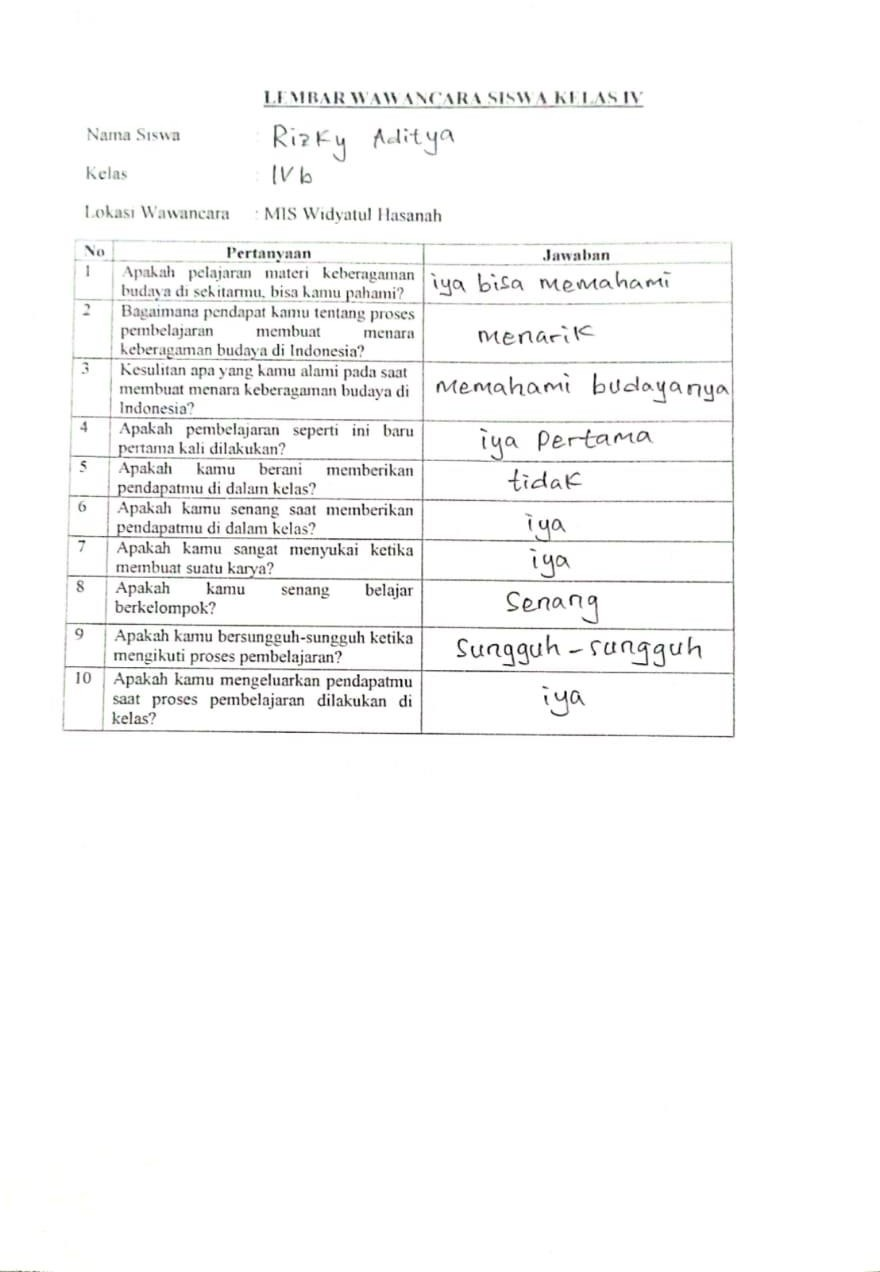 LEMBAR WAWANCARA SISWA KELAS IV
Nama Siswa : Rizky Aditya
Kelas : IV b
Lokasi Wawancara : MIS Widyatul Hasanah
No Pertanyaan Jawaban
1 Apakah pelajaran materi keberagaman
budaya di sekitarmu, bisa kamu pahami?
iya bisa memahami
2 Bagaimana pendapat kamu tentang proses
pembelajaran membuat menara
keberagaman budaya di Indonesia?
menarik
3 Kesulitan apa yang kamu alami pada saat
membuat menara keberagaman budaya di
Indonesia?
Memahami budayanya
4 Apakah pembelajaran seperti ini baru
pertama kali dilakukan?
iya pertama
5 Apakah kamu berani memberikan
pendapatmu di dalam kelas?
tidak
6 Apakah kamu senang saat memberikan
pendapatmu di dalam kelas?
iya
7 Apakah kamu sangat menyukai ketika
membuat suatu karya?
iya
8 Apakah kamu senang belajar
berkelompok?
Senang
9 Apakah kamu bersungguh-sungguh ketika
mengikuti proses pembelajaran?
Sungguh-sungguh
10 Apakah kamu mengeluarkan pendapatmu
saat proses pembelajaran dilakukan di
kelas?
iya